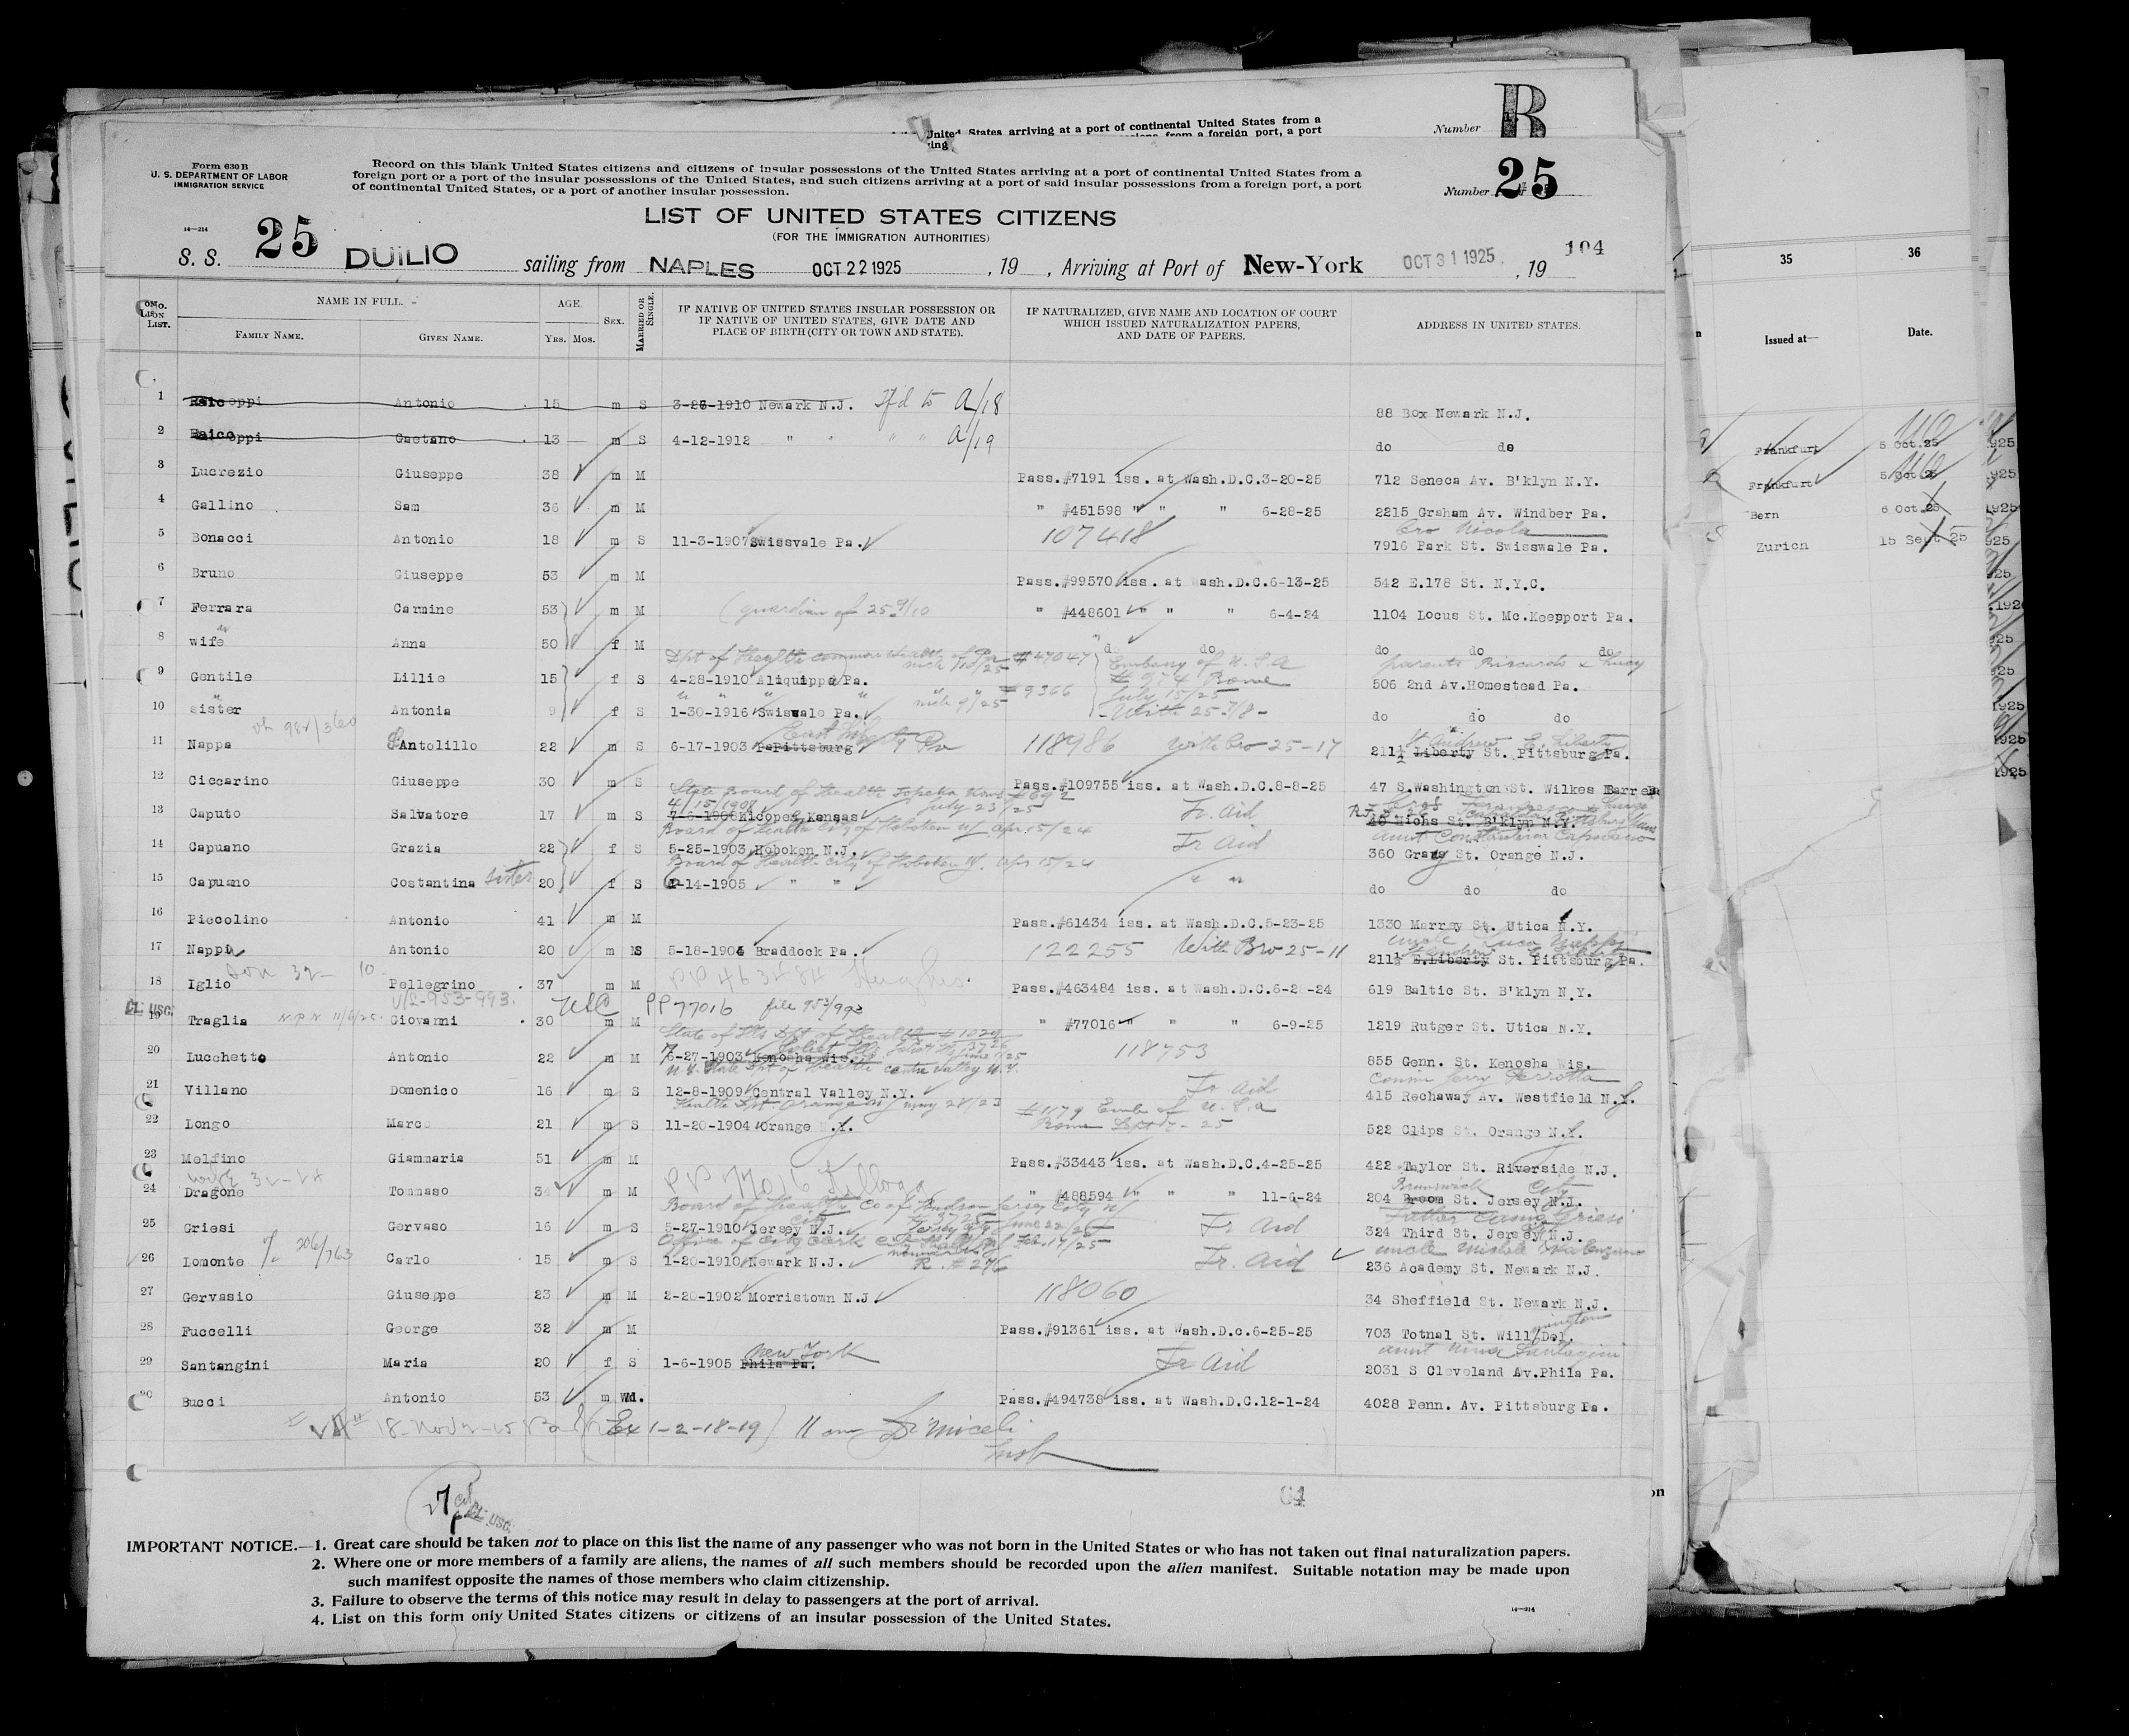 United States arriving at a port of continental United States from a
from a foreign port, a port
Number R
Form 630 B
U. S. DEPARTMENT OF LABOR
IMMIGRATION SERVICE
Record on this blank United States citizens and citizens of insular possessions of the United States arriving at a port of continental United States from a
foreign port or a port of the insular possessions of the United States, and such citizens arriving at a port of said insular possessions from a foreign port, a port
of continental United States, or a port of another insular possession.
Number 25
LIST OF UNITED STATES CITIZENS
(FOR THE IMMIGRATION AUTHORITIES)
14—214
S. S. 25 DUILIO sailing from NAPLES OCT 22 1925, 19 , Arriving at Port of New-York OCT 31 1925, 19 104
No. ON LIST. NAME IN FULL. AGE. SEX. MARRIED OR SINGLE. IF NATIVE OF UNITED STATES INSULAR POSSESSION OR IF NATIVE OF UNITED STATES, GIVE DATE AND PLACE OF BIRTH (CITY OR TOWN AND STATE). IF NATURALIZED, GIVE NAME AND LOCATION OF COURT WHICH ISSUED NATURALIZATION PAPERS, AND DATE OF PAPERS. ADDRESS IN UNITED STATES.
FAMILY NAME. GIVEN NAME. YRS. MOS.
1 Antonio 15 m S 3-26-1910 Newark N.J. Tf'd to A/18 88 Box Newark N.J.
2 Gaetano 13 m S 4-12-1912 " " " " A/19 do do
3 Lucrezio Giuseppe 38 m M Pass.#7191 iss. at Wash.D.C.3-20-25 712 Seneca Av. B'klyn N.Y.
4 Gallino Sam 36 m M " #451598 " " " 6-28-25 2215 Graham Av. Windber Pa.
Bro Nicola
5 Bonacci Antonio 18 m S 11-3-1907 Swissvale Pa. 107418 7916 Park St. Swisswale Pa.
6 Bruno Giuseppe 53 m M Pass.#99570 iss. at Wash.D.C.6-13-25 542 E.178 St. N.Y.C.
7 Ferrara Carmine 53 m M (guardian of 25 9/10 " #448601 " " " 6-4-24 1104 Locus St. Mc.Keesport Pa.
8 wife Anna 50 f M do do do do do
Dpt of Health commonwealth of Pa #47047 Embassy of U.S.A parents Riccardo & Lucy
9 Gentile Lillie 15 f S 4-28-1910 Aliquippa Pa. # 974 Rome 506 2nd Av.Homestead Pa.
" " " " #9366 July 15/25
10 sister Antonia 9 f S 1-30-1916 Swiswale Pa. With 25-7/8- do do do
East Liberty Pa St Andrew E. Liberty
11 Nappa Antolillo 22 m S 6-17-1903 Pittsburg 118986 With bro 25-17 211½ Liberty St. Pittsburg Pa.
12 Ciccarino Giuseppe 30 m S Pass.#109755 iss. at Wash.D.C.8-8-25 47 S.Washington St. Wilkes Barre
State Board of Health Topeka Kans #692
4/15/1908 July 23/25
13 Caputo Salvatore 17 m S 7-6-1908 Kicopee Kansas Fr. Aid 48 Hichs St. B'klyn N.Y.
Board of Health City of Hoboken NJ Apr 15/24
14 Capuano Grazia 22 f S 5-25-1903 Hoboken N.J. Fr Aid 360 Grang St. Orange N.J.
Board of Health City of Hoboken NJ. Apr 15/24
15 Capuano Costantina sister 20 f S 1-14-1905 " " " " do do do
16 Piccolino Antonio 41 m M Pass.#61434 iss. at Wash.D.C.5-23-25 1330 Marrey St. Utica N.Y.
uncle Luca Nappi
17 Nappi Antonio 20 m S 5-18-1904 Braddock Pa. 122255 With Bro 25-11 211½ E.Liberty St. Pittsburg Pa.
PP 463484 Hughes
18 Iglio Pellegrino 37 m M Pass.#463484 iss. at Wash.D.C.6-2-24 619 Baltic St. B'klyn N.Y.
V/2-953-993. USC PP 77016 file 953/993
CL. USC. 19 Traglia Giovanni 30 m M " #77016 " " " 6-9-25 1219 Rutger St. Utica N.Y.
20 Lucchetto Antonio 22 m M 6-27-1903 Kenosha Wis. 118753 855 Genn. St. Kenosha Wis.
N.Y. State Dpt of Health Centre Valley N.Y.
21 Villano Domenico 16 m S 12-8-1909 Central Valley N.Y. Fr Aid 415 Rechaway Av. Westfield N.Y.
Health Dpt. Orange NJ May 28/23 #1179 Emb of U.S.A
22 Longo Marco 21 m S 11-20-1904 Orange N.Y. Rome Sept 7-25 522 Clips St. Orange N.Y.
23 Melfino Giammaria 51 m M Pass.#33443 iss. at Wash.D.C.4-25-25 422 Taylor St. Riverside N.J.
PP 77016 Kellogg
24 Dragone Tommaso 34 m M " #488594 " " " 11-6-24 204 Broom St. Jersey N.J. Brunswick City
Board of Health Co of Hudson Jersey City NJ
25 Griesi Gervaso 16 m S 5-27-1910 Jersey City N.J. June 22/25 Fr Aid 324 Third St. Jersey N.J.
Office of City Clerk Feb. 14/25 uncle Michele
26 Lomonte 206/763 Carlo 15 m S 1-20-1910 Newark N.J. R. #276 Fr. Aid 236 Academy St. Newark N.J.
27 Gervasio Giuseppe 23 m M 2-20-1902 Morristown N.J 118060 34 Sheffield St. Newark N.J.
28 Fuccelli George 32 m M Pass.#91361 iss. at Wash.D.c.6-25-25 703 Totnal St. Will/Del. mington
New York aunt Nina Santagini
29 Santangini Maria 20 f S 1-6-1905 Phila Pa. Fr Aid 2031 S Cleveland Av.Phila Pa.
30 Bucci Antonio 53 m Wd. Pass.#494738 iss. at Wash.D.C.12-1-24 4028 Penn. Av. Pittsburg Pa.
Ex 1-2-18-19) 11 am Miceli
Insp
CL. USC.
IMPORTANT NOTICE.—1. Great care should be taken not to place on this list the name of any passenger who was not born in the United States or who has not taken out final naturalization papers.
2. Where one or more members of a family are aliens, the names of all such members should be recorded upon the alien manifest. Suitable notation may be made upon
such manifest opposite the names of those members who claim citizenship.
3. Failure to observe the terms of this notice may result in delay to passengers at the port of arrival.
4. List on this form only United States citizens or citizens of an insular possession of the United States.
14—214
35 36
Issued at— Date.
Frankfurt 5 Oct.25
Frankfurt 5 Oct 25
Bern 6 Oct.25
Zurich 15 Sept 25